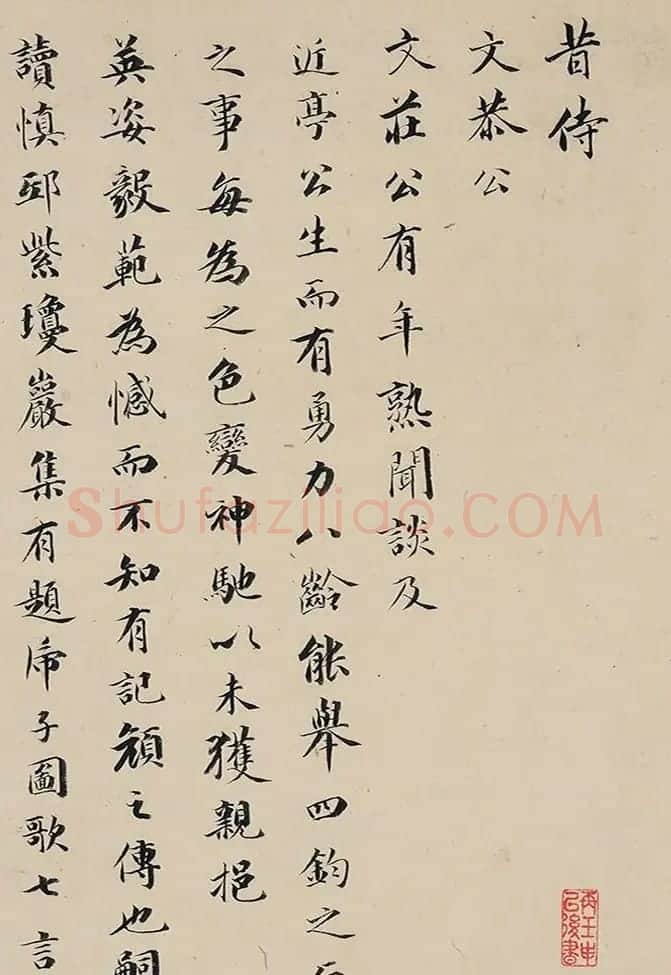 昔侍
文恭公
文莊公有年熟聞談及
近亭公生而有勇力八齡能舉四鈞之
之事每為之色變神馳以未獲親挹
英姿毅範為憾而不知有記之傳也嗣
讀慎邸紫瓊巖集有題虎子圖歌七言
再壬申㠯後書
Shufaziliao.COM